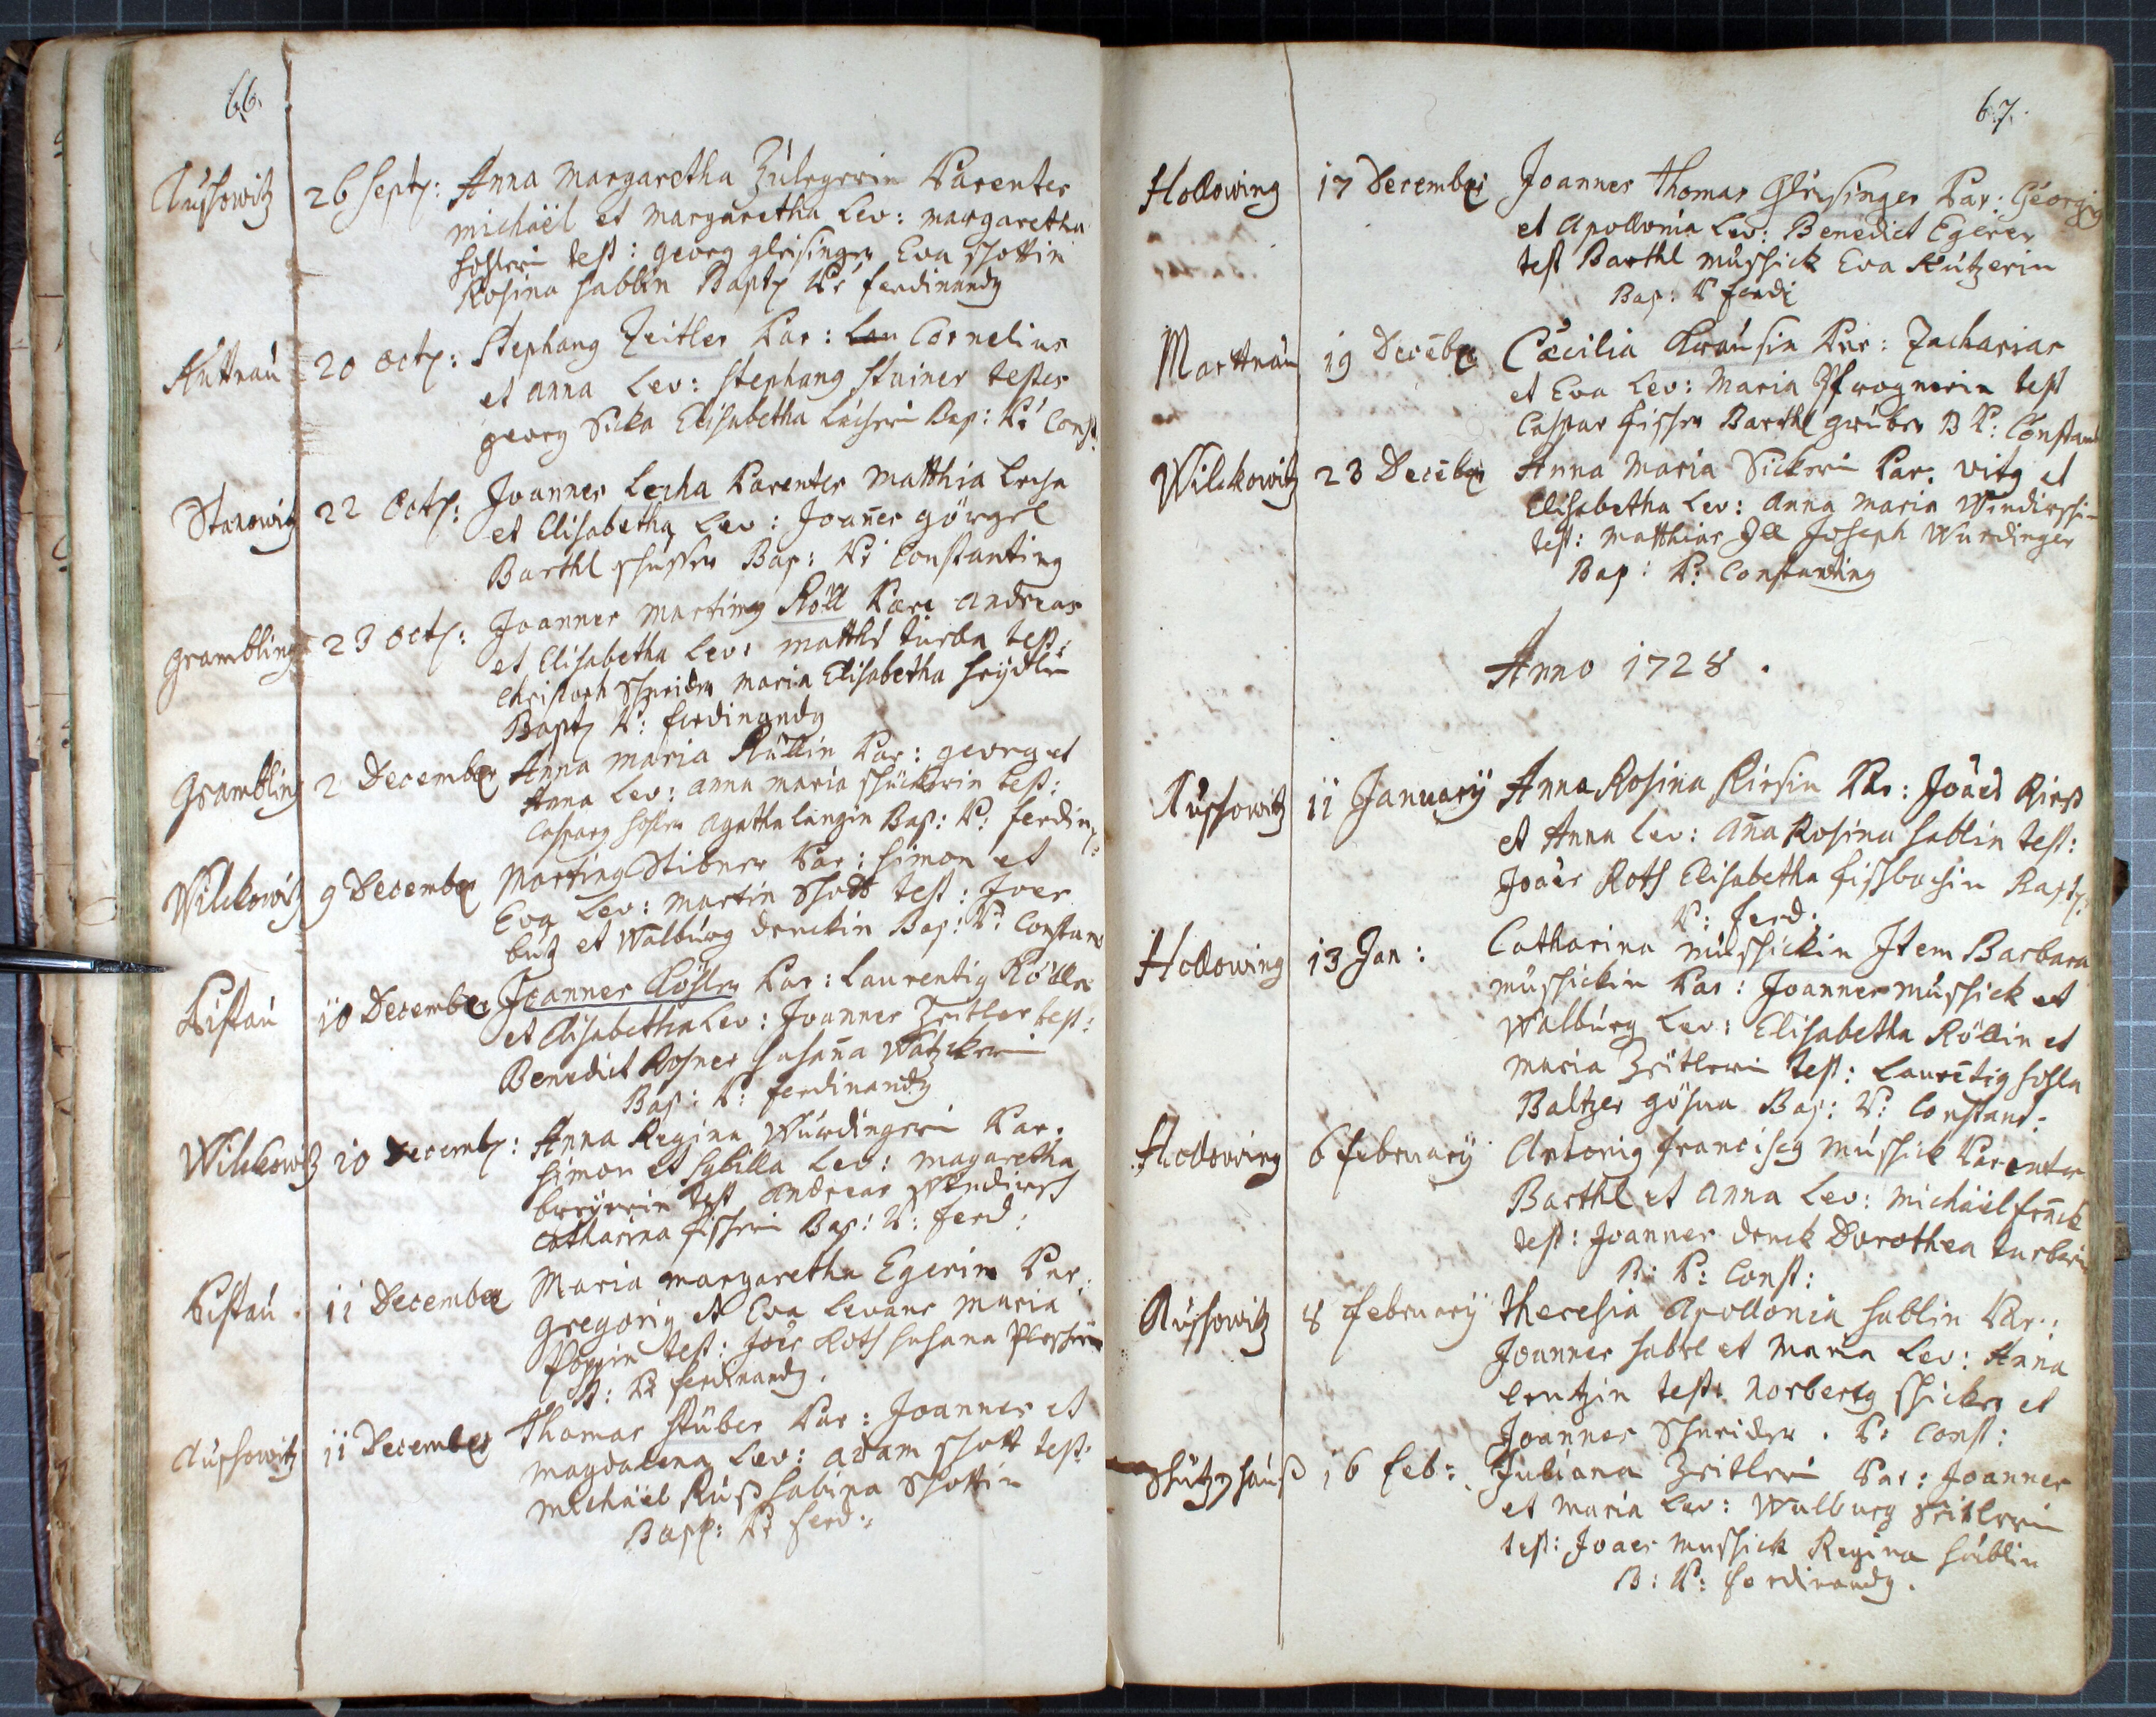 66.
Aushowitz 26 Sept: Anna Margaretha Zülegerin Parentes
Michäel et Margaretha Lev: Margaretha
test: Georg Gleisinger Eva Schottin
Rosina Hablin Bapt: P: Ferdinandg
Kuttnau 20 Oct: Stephang Zeitler Par: Cornelius
et Anna Lev: Stephang Stainer testes
Georg Sicka Elisabetha Bap: P: Const:
Stanowitz 22 Oct: Joannes Lecha Parentes Matthia Lecha
et Elisabetha Lev: Joañes Görgel
Barthl Bap: P: Constanting
Grambling 23 Oct: Joannes Marting Röll Pare Andreas
et Elisabetha Lev: Matths test:
Christoph Schneider Maria Elisabetha
Bapt P: Ferdinandg
Grambling 2 December Anna Maria Rüllin Par: Georg et
Anna Lev: Anna Maria test:
Casparg Agatha Langin Bap: P: Ferdin:
Wilckowitz 9 December Marting Stibner Par: Simon et
Eva Lev: Martin Schott test: Joes
butz et Walburg Denckin Bap: P: Constant
Pistau 10 December Joannes Par: Laurentig
et Elisabetha Lev: Joannes Zeitler test:
Benedict Rosner Susaña
Bap: P: Ferdinandg
Wilckowitz 10 Decemb: Anna Regina Würdingerin Par.
Simon et Sybilla Lev: Magaretha
test Andreas
Catharina Fischerin Bap: P: Ferd:
Pistau 11 December Maria Margaretha Egerin Par:
Gregorig et Eva Levans Maria
Poppin test: Joes Roth Susana
B: P: Ferdinandg.
Aushowitz 11 December Thomas Stüber Par: Joannes et
Magdalena Lev: Adam Schott test:
Michäel Ruß Sabina Schottin
Bapt: P: Ferd:
67.
Hollowing 17 December Joannes Thomas Gleisinger Par: Georgig
et Apollonia Lev: Benedict Egerer
test Barthl Muschick Eva Kutzerin
Bap: P Ferdi
Marttnau 19 Decēber Cæcilia Krausin Par: Zacharias
et Eva Lev: Maria Pfrognerin test
Caspar Fischer Barthl Gruber B P: Constant
Wilckowitz 23 Decēber Anna Maria Sickerin Par: Vitg et
Elisabetha Lev: Anna Maria
test: Matthias Ill Joseph Würdinger
Bap: P: Constanting
Anno 1728.
Aushowitz 11 Januarÿ Anna Rosina Kirsin Par: Joaes Kirs
et Anna Lev: Aña Rosina Hablin test:
Joaes Roth Elisabetha Fischbachin Bapt:
P: Ferd:
Hollowing 13 Jan: Catharina Muschickin Item Barbara
Muschickin Par: Joannes Muschick et
Walburg Lev: Elisabetha Röllin et
Maria Zeitlerin test: Laurētig
Baltzer Bap: P: Constant:
Hollowing 6 Februarÿ Antonig Franciscg Muschick Parentes
Barthl et Anna Lev: Michäel
test: Joannes Denck Dorothea
B: P: Const:
Aushowitz 8 Februarÿ Theresia Apollonia Hablin Par:
Joannes Habel et Maria Lev: Anna
Lentzin test: Norbertg et
Joannes Schneider. P: Const:
Schützhauß 16 Feb: Juliana Zeitlerin Par: Joannes
et Maria Lev: Walburg Zeitlerin
test: Joaes Muschick Regina Hablin
B: P: Ferdinandg.